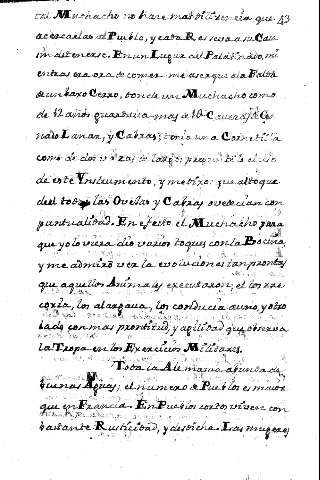 tal Muchacho no hace mas diligencia que 43
acercarlas al Pueblo, y cada Res
sin detenerse. En un Lugar del Palatinado, mi
entras era ora de comer me acerque a la Falda
de un baxo Cerro, donde un Muchacho como
de 12 años guardavia mas de 10 Cavezas de Ga
nado Lanar, y Cabras; tenia una Cornetilla
como de dos varas de largo: pregunté le el uso
de este Ynstrumento, y me dixo: que al toque
del todas las Ovejas y Cabras ovedecian con
puntualidad. En efecto el Muchacho para
que yo lo viera dio varios toques con la Bocina,
y me admiró ver la evolucion es tan prontas
que aquellos Animales executaron; el los rre
cogia, los alargava, los conducia a uno, y otro
lado con mas prontitud, y agilidad que observa
la Tropa en los Exercicios Militares.
Toda la Alemania abunda de
buenas Aguas; el numero de Pueblos es maior
que en Francia. En Pueblos cortos viven con
bastante Rusticidad, y desdicha. Las mugeres